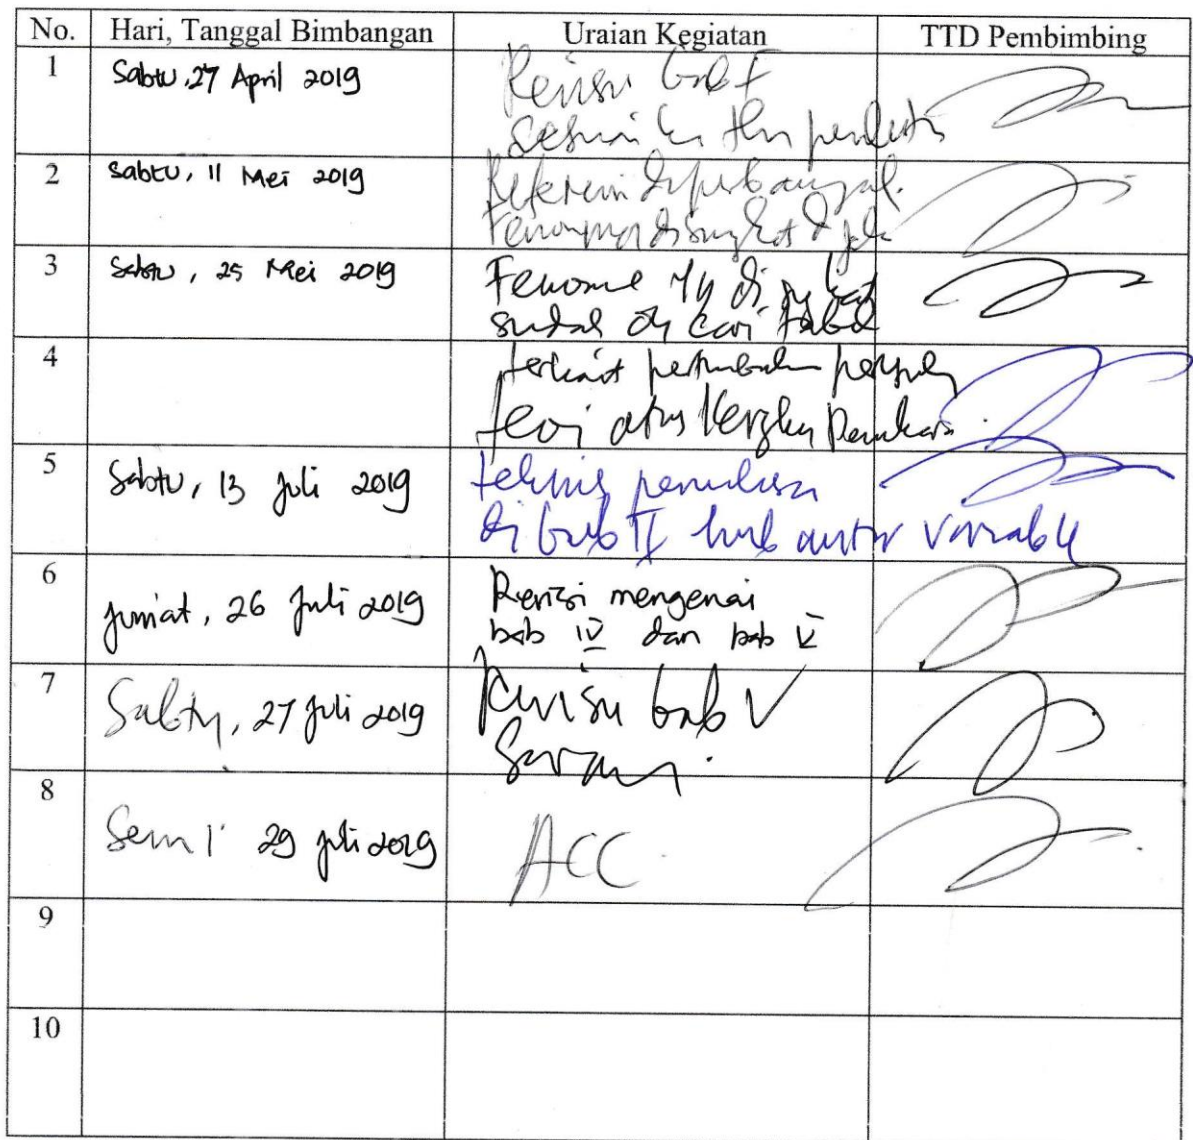 No. Hari, Tanggal Bimbangan Uraian Kegiatan TTD Pembimbing
1 Sabtu, 27 April 2019 Revisi bab I
sesuai
2 Sabtu, 11 Mei 2019 Referensi diperbanyak.
3 Sabtu, 25 Mei 2019 Fenome yg di
sudah di cari tabel
4 terkait
teori atas
5 Sabtu, 13 Juli 2019 teknis penulisan
di bab II hub antar variable
6 Jum'at, 26 Juli 2019 Revisi mengenai
bab IV dan bab V
7 Sabtu, 27 Juli 2019 Revisi bab V
Saran.
8 29 Juli 2019 ACC
9
10